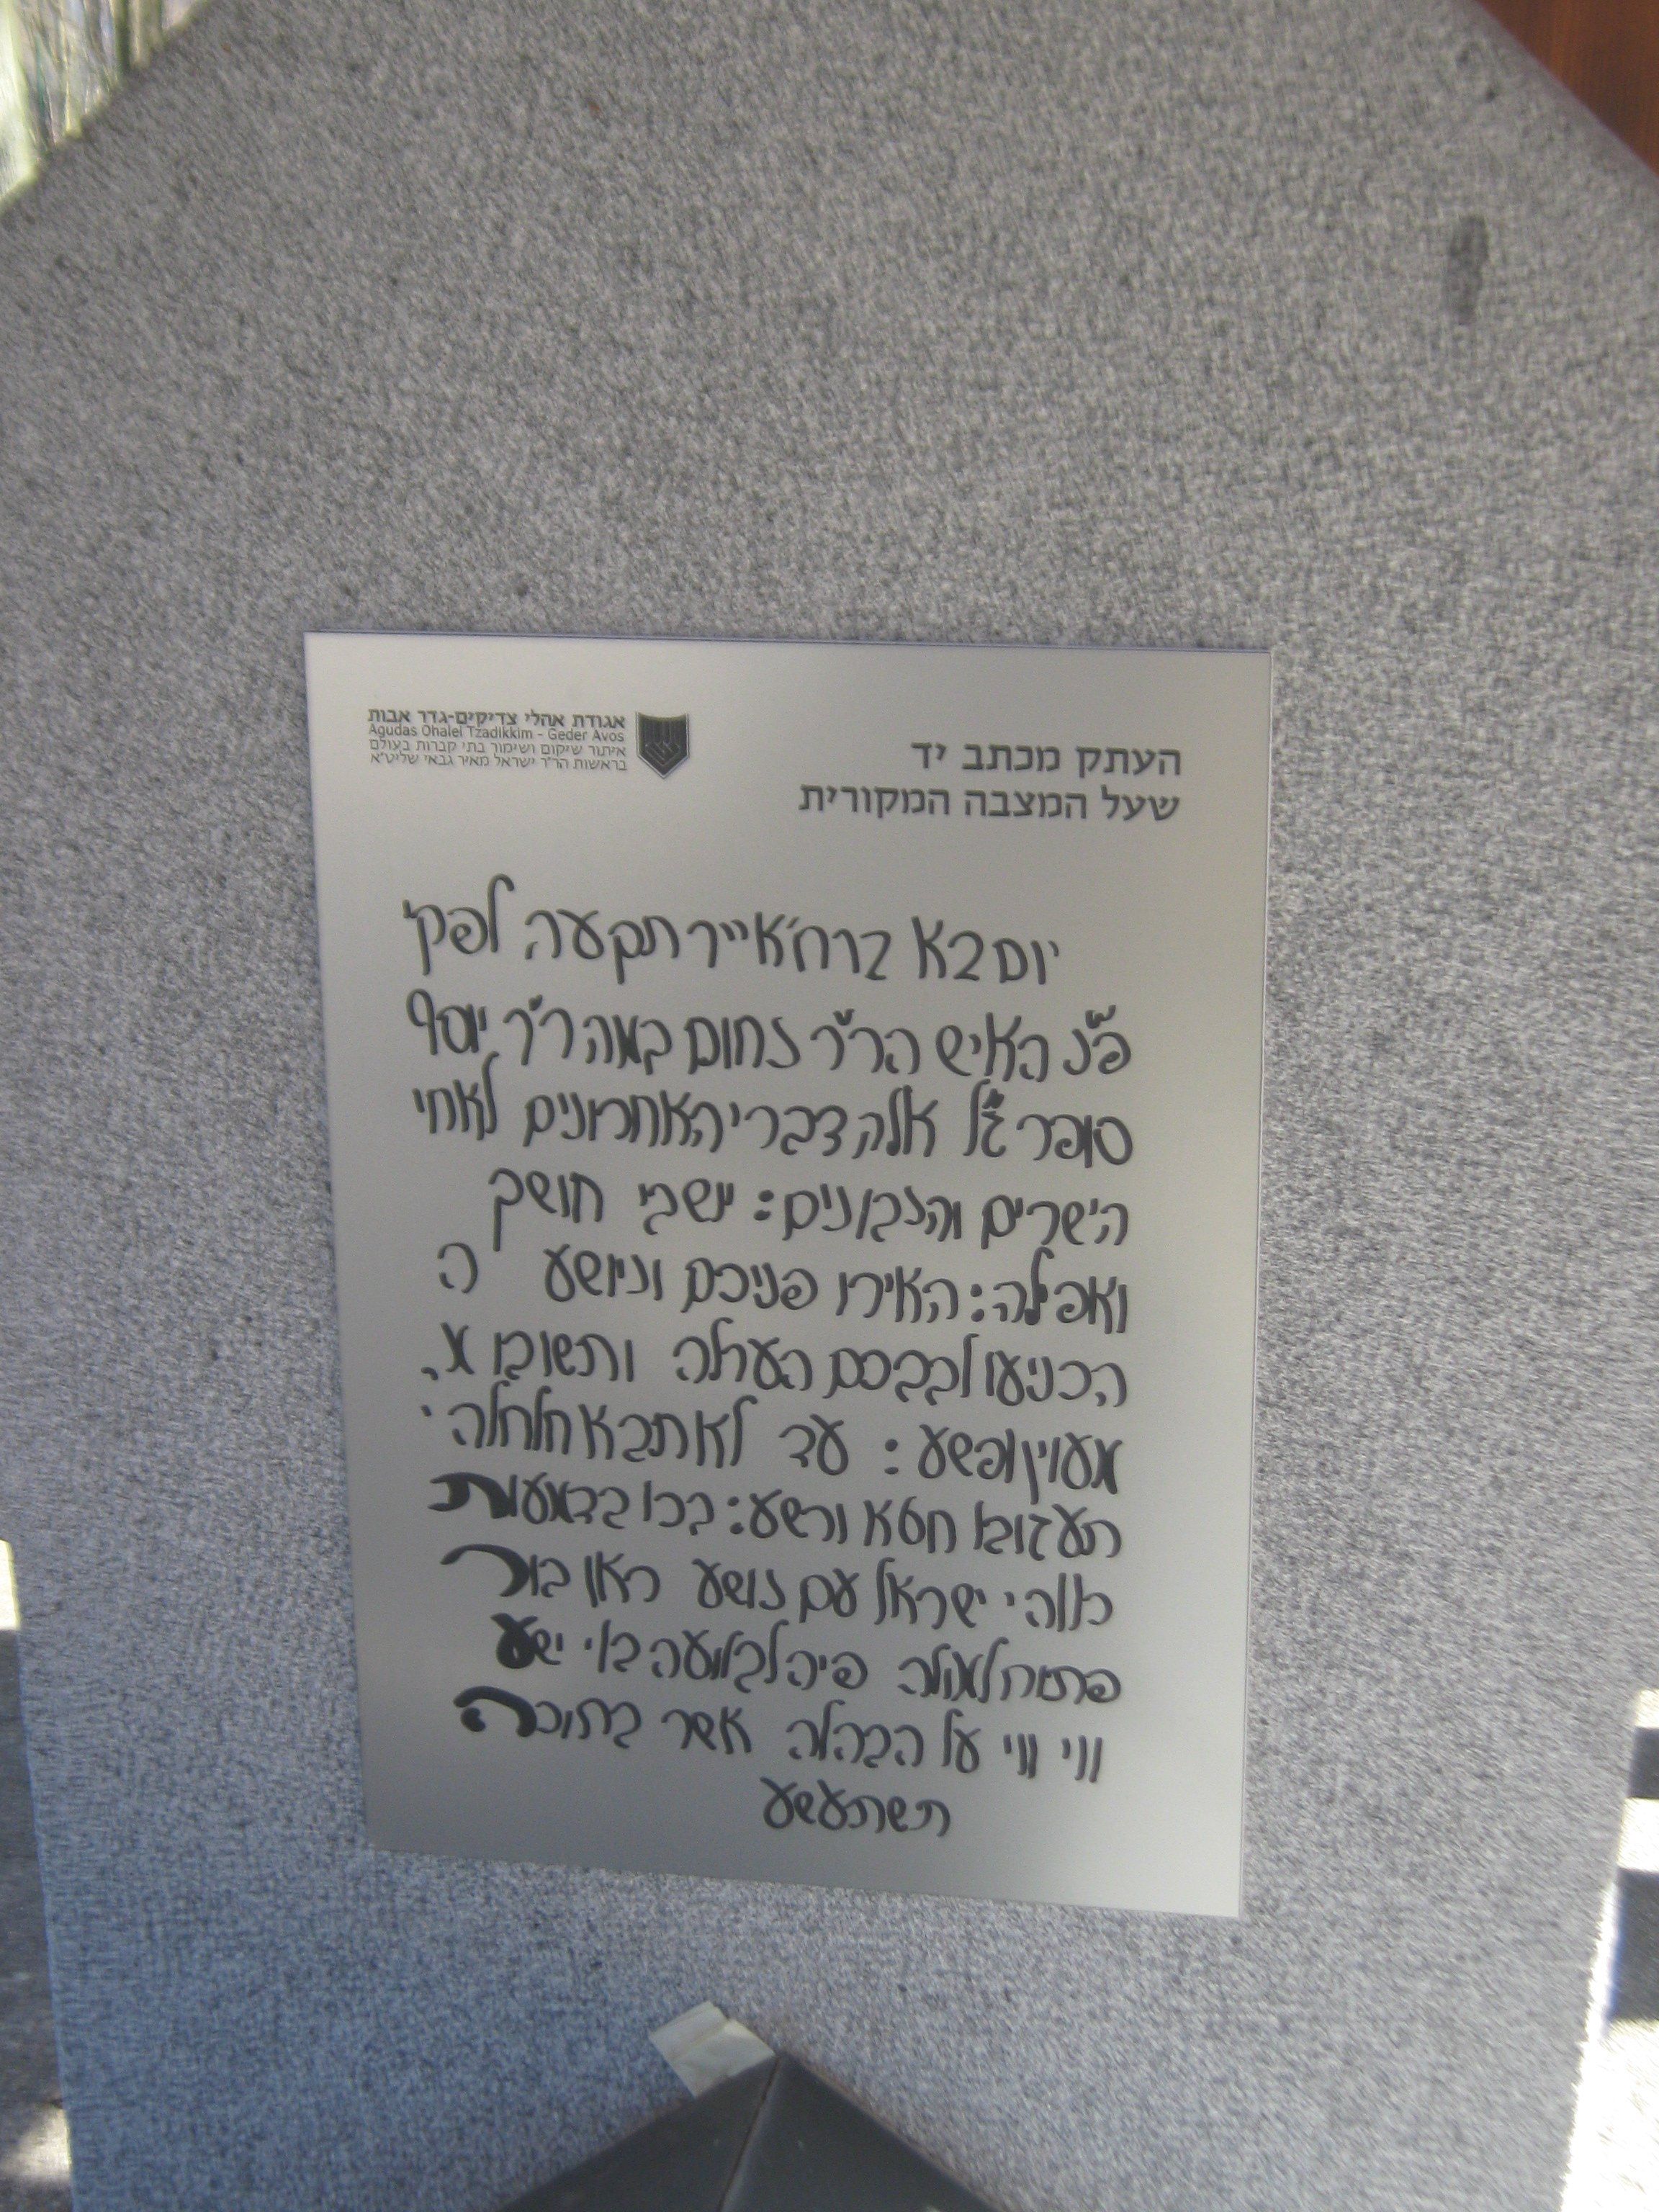 אגודת אהלי צדיקים-גדר אבות
Agudas Ohalei Tzadikkim - Geder Avos
איתור שיקום ושימור בתי קברות בעולם
בראשות הר"ר ישראל מאיר גבאי שליט"א
העתק מכתב יד
שעל המצבה המקורית
יום ב א בר"ח אייר תקעה לפק
פ"נ האיש הר"ר נחום במהר"ר יוסף
סופר ז"ל אלה דברי האחרונים לאחי
הישרים והנבונים: יושבי חושך
ואפילה: האירו פניכם וניושע ה
הכניעו לבבכם הערלה ותשובו
מעוין ופשע: עד לא תבא חלחלה
תעזובו חטא ורשע: בכו בדמעות
ישראל עם נושע ראו בור
פתוח למולה פיה לבלועה באי ישע
ווי ווי על הבהלה אשר בתוכה
תשתעשע